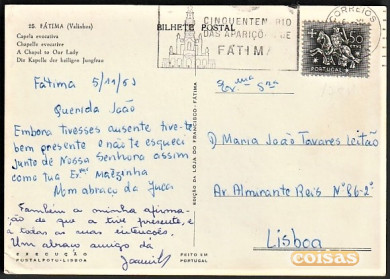 25. FÁTIMA (Valinhos)
Capela evocative
Chapelle evocative
A Chapel to Our Lady
Die Kapelle der heiligen Jungfrau
BILHETE POSTAL
CINQUENTEN RIO
DAS APARIÇÕES DE
FÁTIMA
CORREIOS
1$50
PORTUGAL
Fátima 5/11/63
Querida João
Embora tivesses ausente tive-te
bem presente e não te esqueci
junto de Nossa Senhora assim
como tua Mãezinha
Num abraço da
Também a minha afirma-
ção de que a tive presente, e
a todas as suas intenções.
Um abraço amigo da
EDIÇÃO DA LOJA DO FRANCISCO - FÁTIMA
Exma Sra
D. Maria João Tavares Leitão
Av. Almirante Reis Nº 86-2º
Lisboa
EXECUÇÃO
POSTALFOTO-LISBOA
FEITO EM
PORTUGAL
coisas